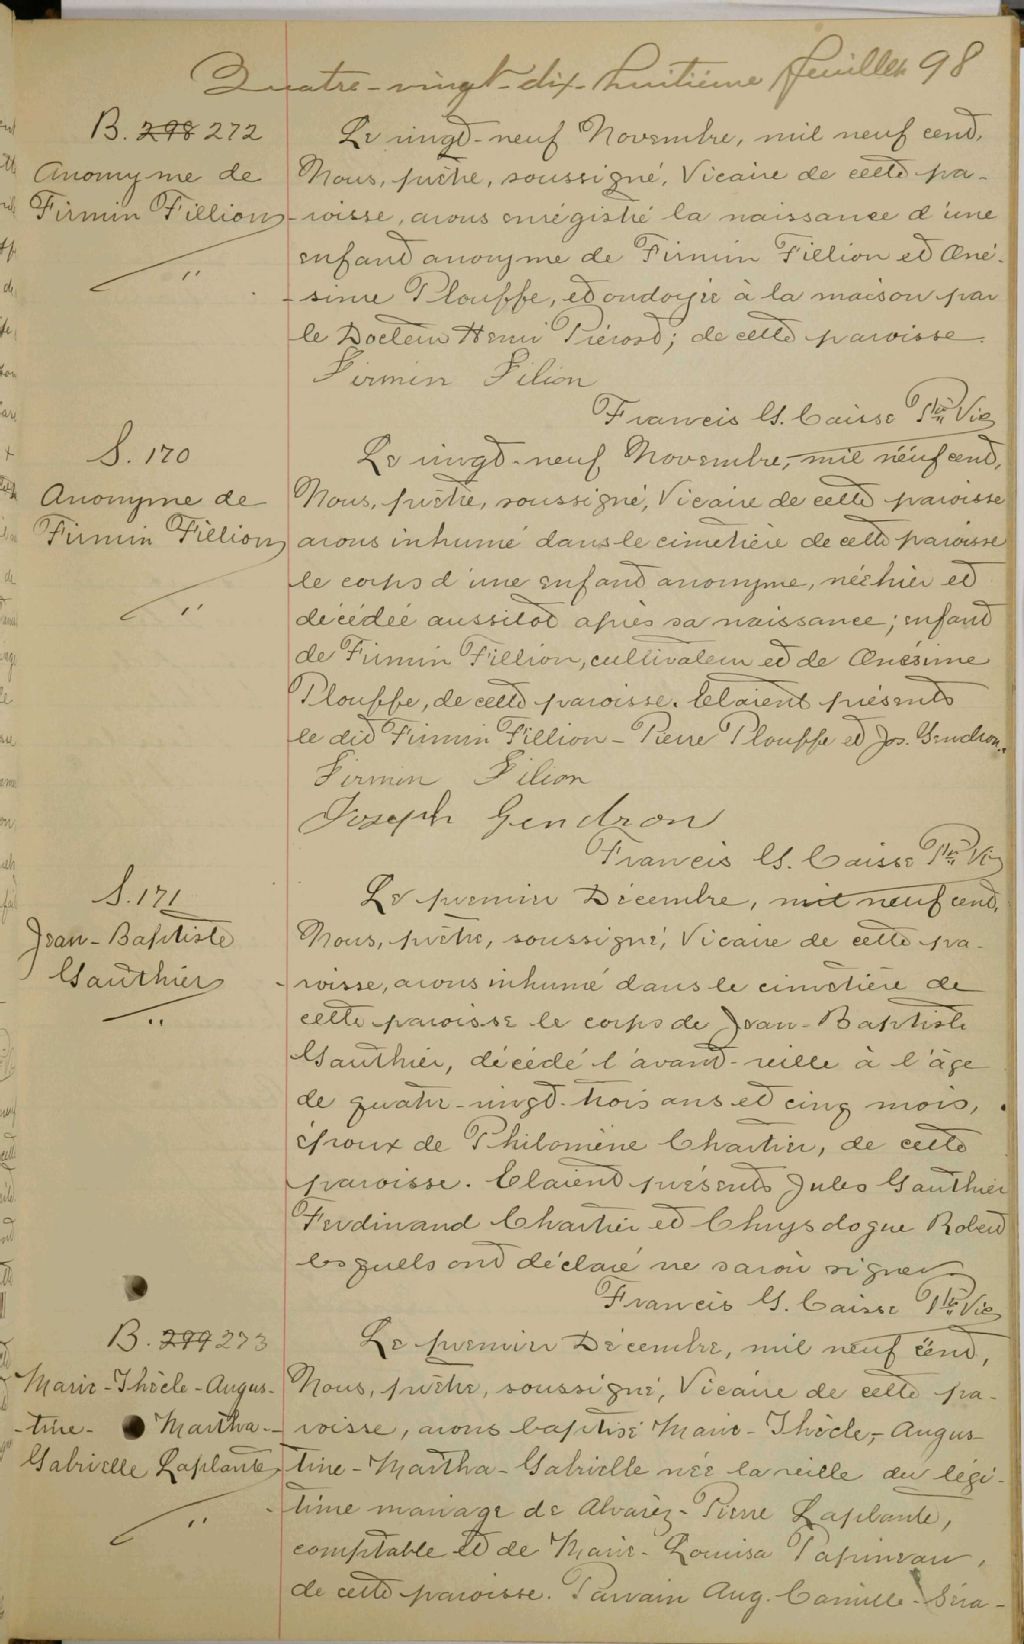 Quatre-vingt-dix-huitième feuillet 98
B. 298 272
Anonyme de
Firmin Fillion
Le vingt-neuf Novembre, mil neuf cent,
Nous, prêtre, soussigné, Vicaire de cette pa-
-roisse, avons enrégistré la naissance d'une
enfant anonyme de Firmin Fillion et Oné-
-sime Plouffe, et ondoyée à la maison par
le Docteur Henri Piérard; de cette paroisse.
Firmin Filion
Francis G. Caisse Ptre Vic
S. 170
Anonyme de
Firmin Fillion
Le vingt-neuf Novembre, mil neuf cent,
Nous, prêtre, soussigné, Vicaire de cette paroisse
avons inhumé dans le cimetière de cette paroisse
le corps d'une enfant anonyme, née hier et
décédée aussitôt après sa naissance; enfant
de Firmin Fillion, cultivateur et de Onésime
Plouffe, de cette paroisse. Etaient présents
le dit Firmin Fillion - Pierre Plouffe et Jos. Gendron.
Firmin Filion
Joseph Gendron
Francis G. Caisse Ptre Vic
S. 171
Jean-Baptiste
Gauthier
Le premier Décembre, mil neuf cent,
Nous, prêtre, soussigné, Vicaire de cette pa-
-roisse, avons inhumé dans le cimetière de
cette paroisse le corps de Jean-Baptiste
Gauthier, décédé l'avant-veille à l'âge
de quatre-vingt-trois ans et cinq mois,
époux de Philomène Chartier, de cette
paroisse. Etaient présents Jules Gauthier
Ferdinand Chartier et Chrysologue Robert
lesquels ont déclaré ne savoir signer
Francis G. Caisse Ptre Vic
B. 299 273
Marie-Thècle-Augus-
-tine- Martha-
Gabrielle Laplante
Le premier Décembre, mil neuf cent,
Nous, prêtre, soussigné, Vicaire de cette pa-
roisse, avons baptisé Marie-Thècle-Augus-
tine-Martha-Gabrielle née la veille du légi-
-time mariage de Alvarèz-Pierre Laplante,
comptable et de Marie-Louisa Papineau,
de cette paroisse. Parrain Aug. Camille-Séra-